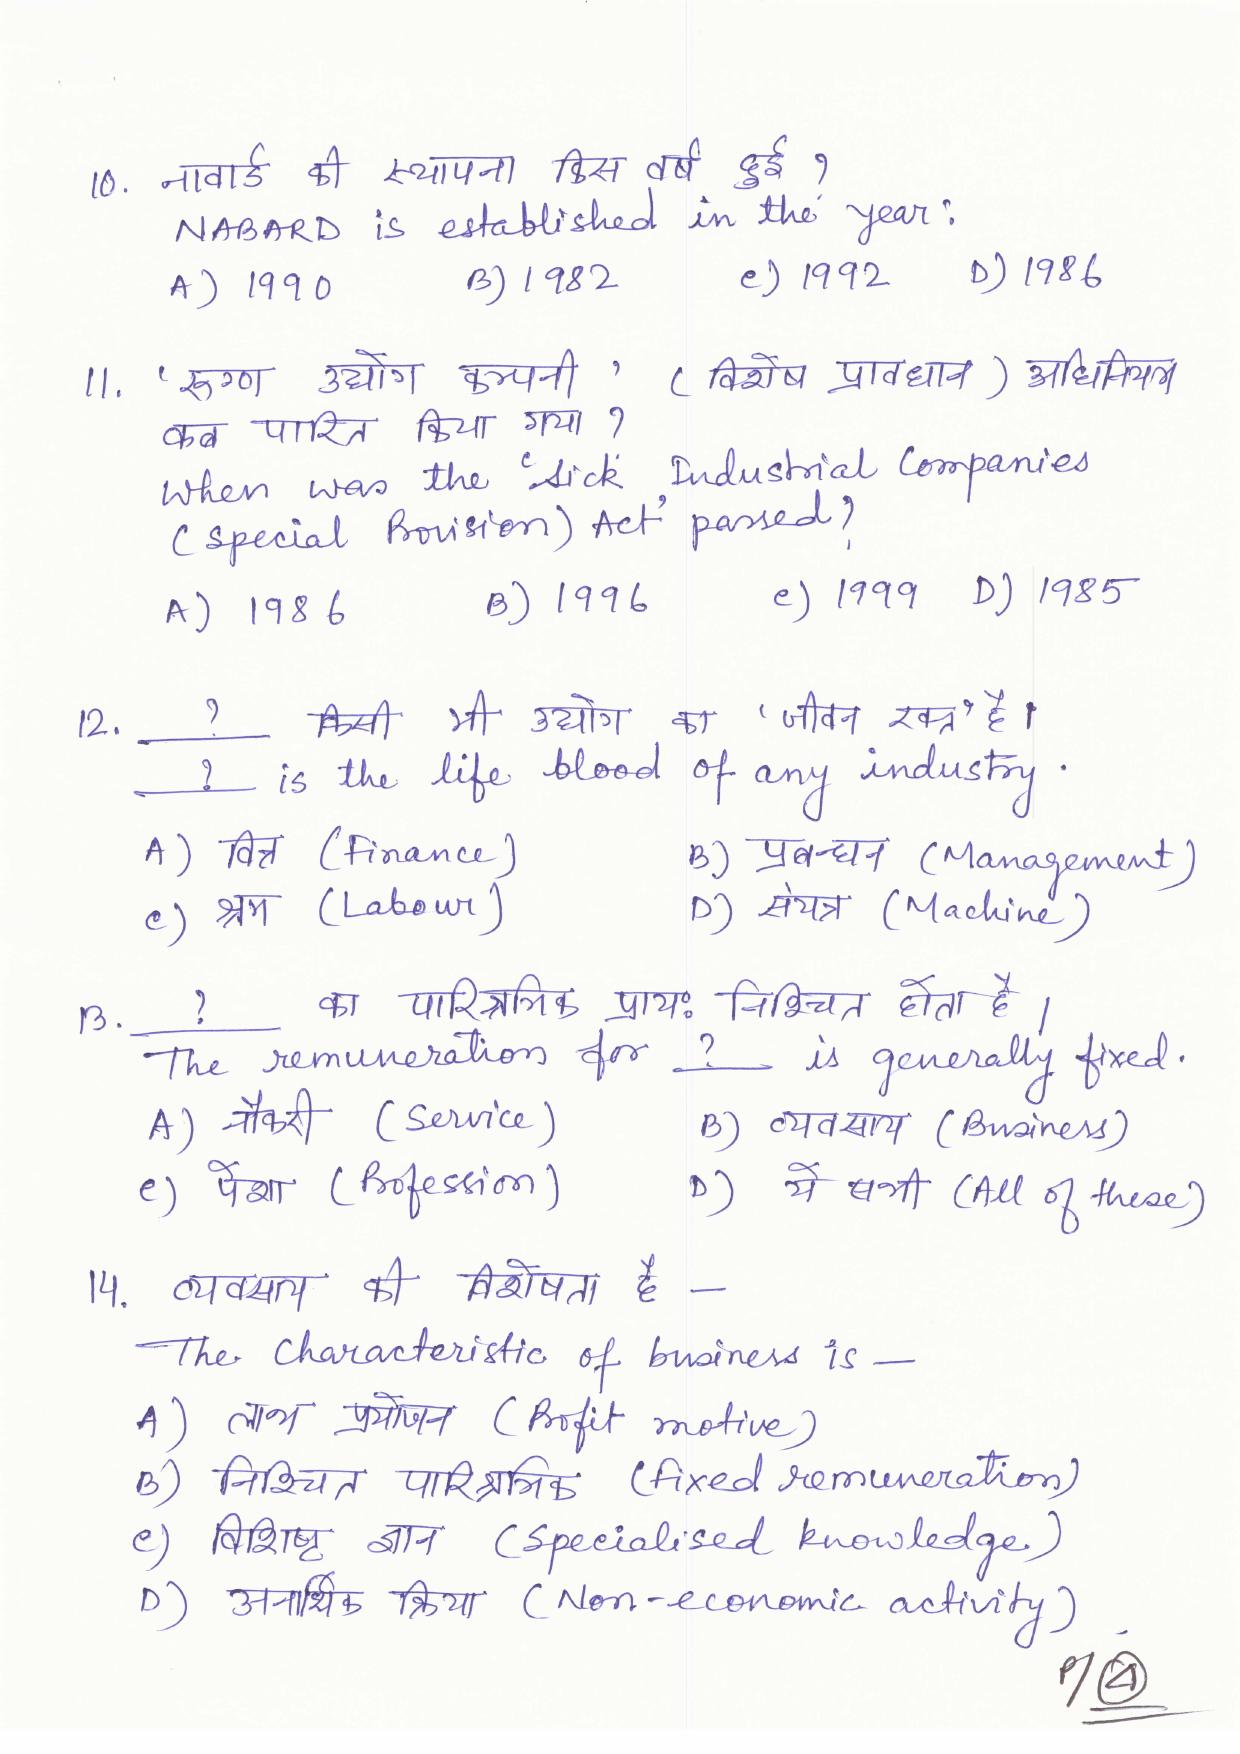 10. नावार्ड की स्थापना किस वर्ष हुई ?
NABARD is established in the year:
A) 1990 B) 1982 C) 1992 D) 1986
11. 'रूग्ण उद्योग कम्पनी' (विशेष प्रावधान) अधिनियम
कब पारित किया गया ?
When was the 'Sick Industrial Companies
(Special Provision) Act' passed?
A) 1986 B) 1996 C) 1999 D) 1985
12. ? किसी भी उद्योग का 'जीवन रक्त' है।
? is the life blood of any industry.
A) वित्त (Finance) B) प्रबन्धन (Management)
C) श्रम (Labour) D) संयत्र (Machine)
13. ? का पारिश्रमिक प्रायः निश्चित होता है।
The remuneration for ? is generally fixed.
A) नौकरी (Service) B) व्यवसाय (Business)
C) पेशा (Profession) D) ये सभी (All of these)
14. व्यवसाय की विशेषता है —
The characteristic of business is —
A) लाभ प्रयोजन (Profit motive)
B) निश्चित पारिश्रमिक (fixed remuneration)
C) विशिष्ट ज्ञान (Specialised knowledge)
D) अनार्थिक क्रिया (Non-economic activity)
P/4